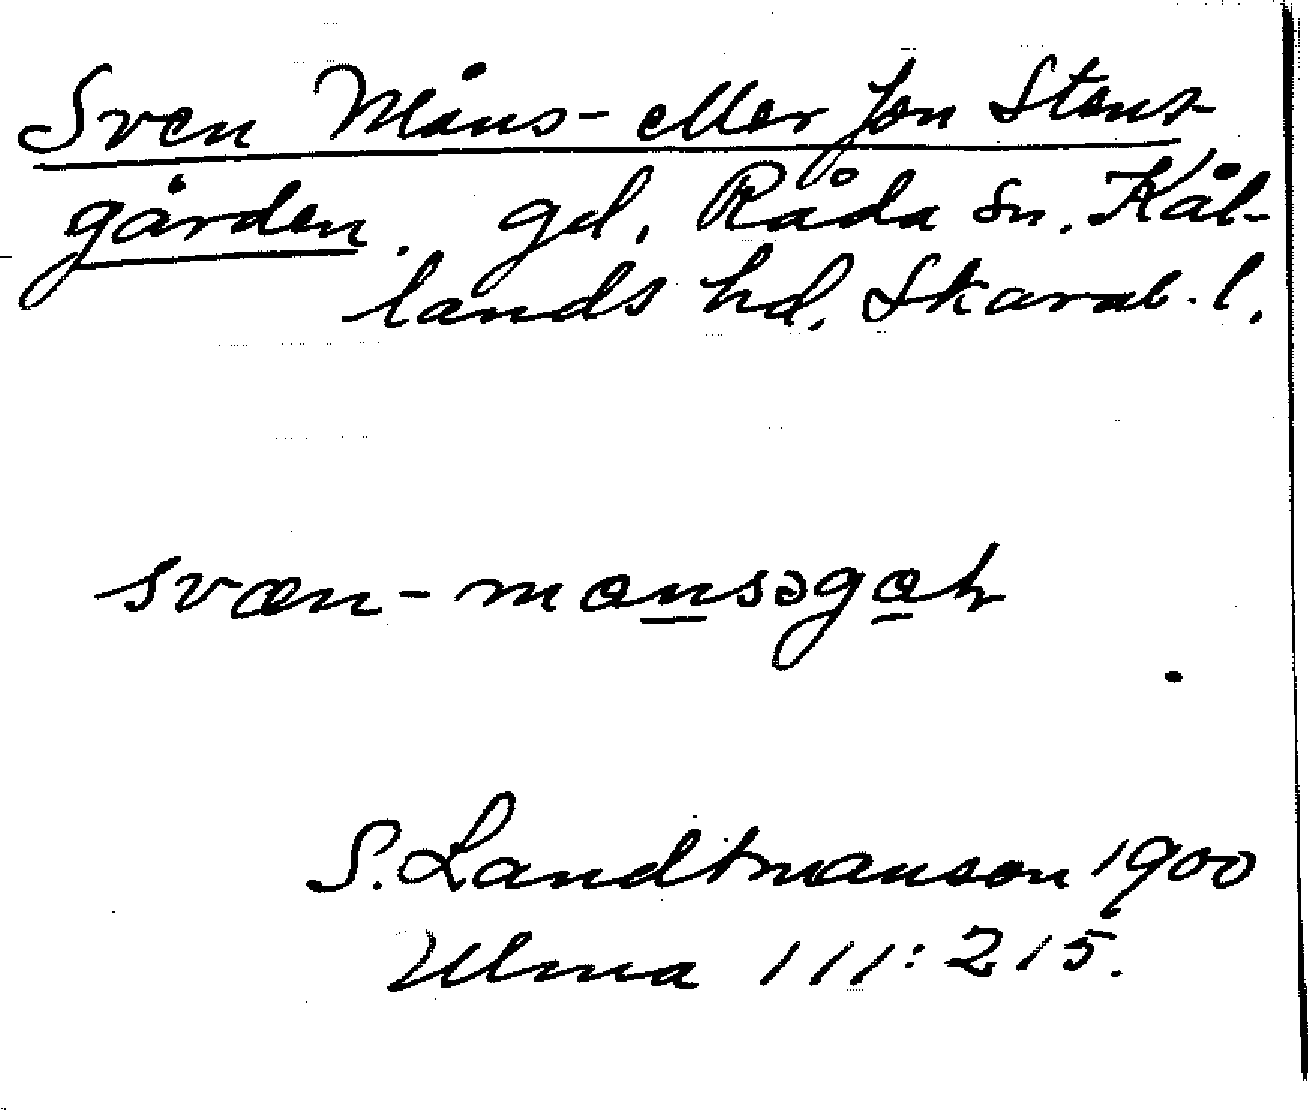 Sven Måns- eller Jon Stens-
gården. gd, Råda sn. Kål-
lands hd, Skarab. l.
svæn-mansəgaɫ
S. Landtmanson 1900
Ulma 111:215.